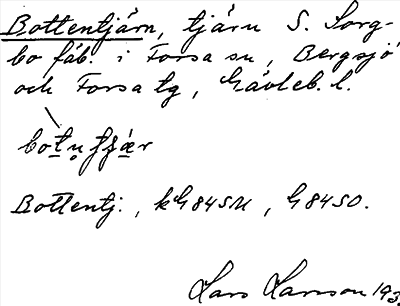 Bottentjärn, tjärn S. Sorg-
bo fäb. i Forsa sn, Bergsjö
och Forsa tg, Gävleb. l.
Bottentj., kG84SU, G84SO.
Lars Larsson 193